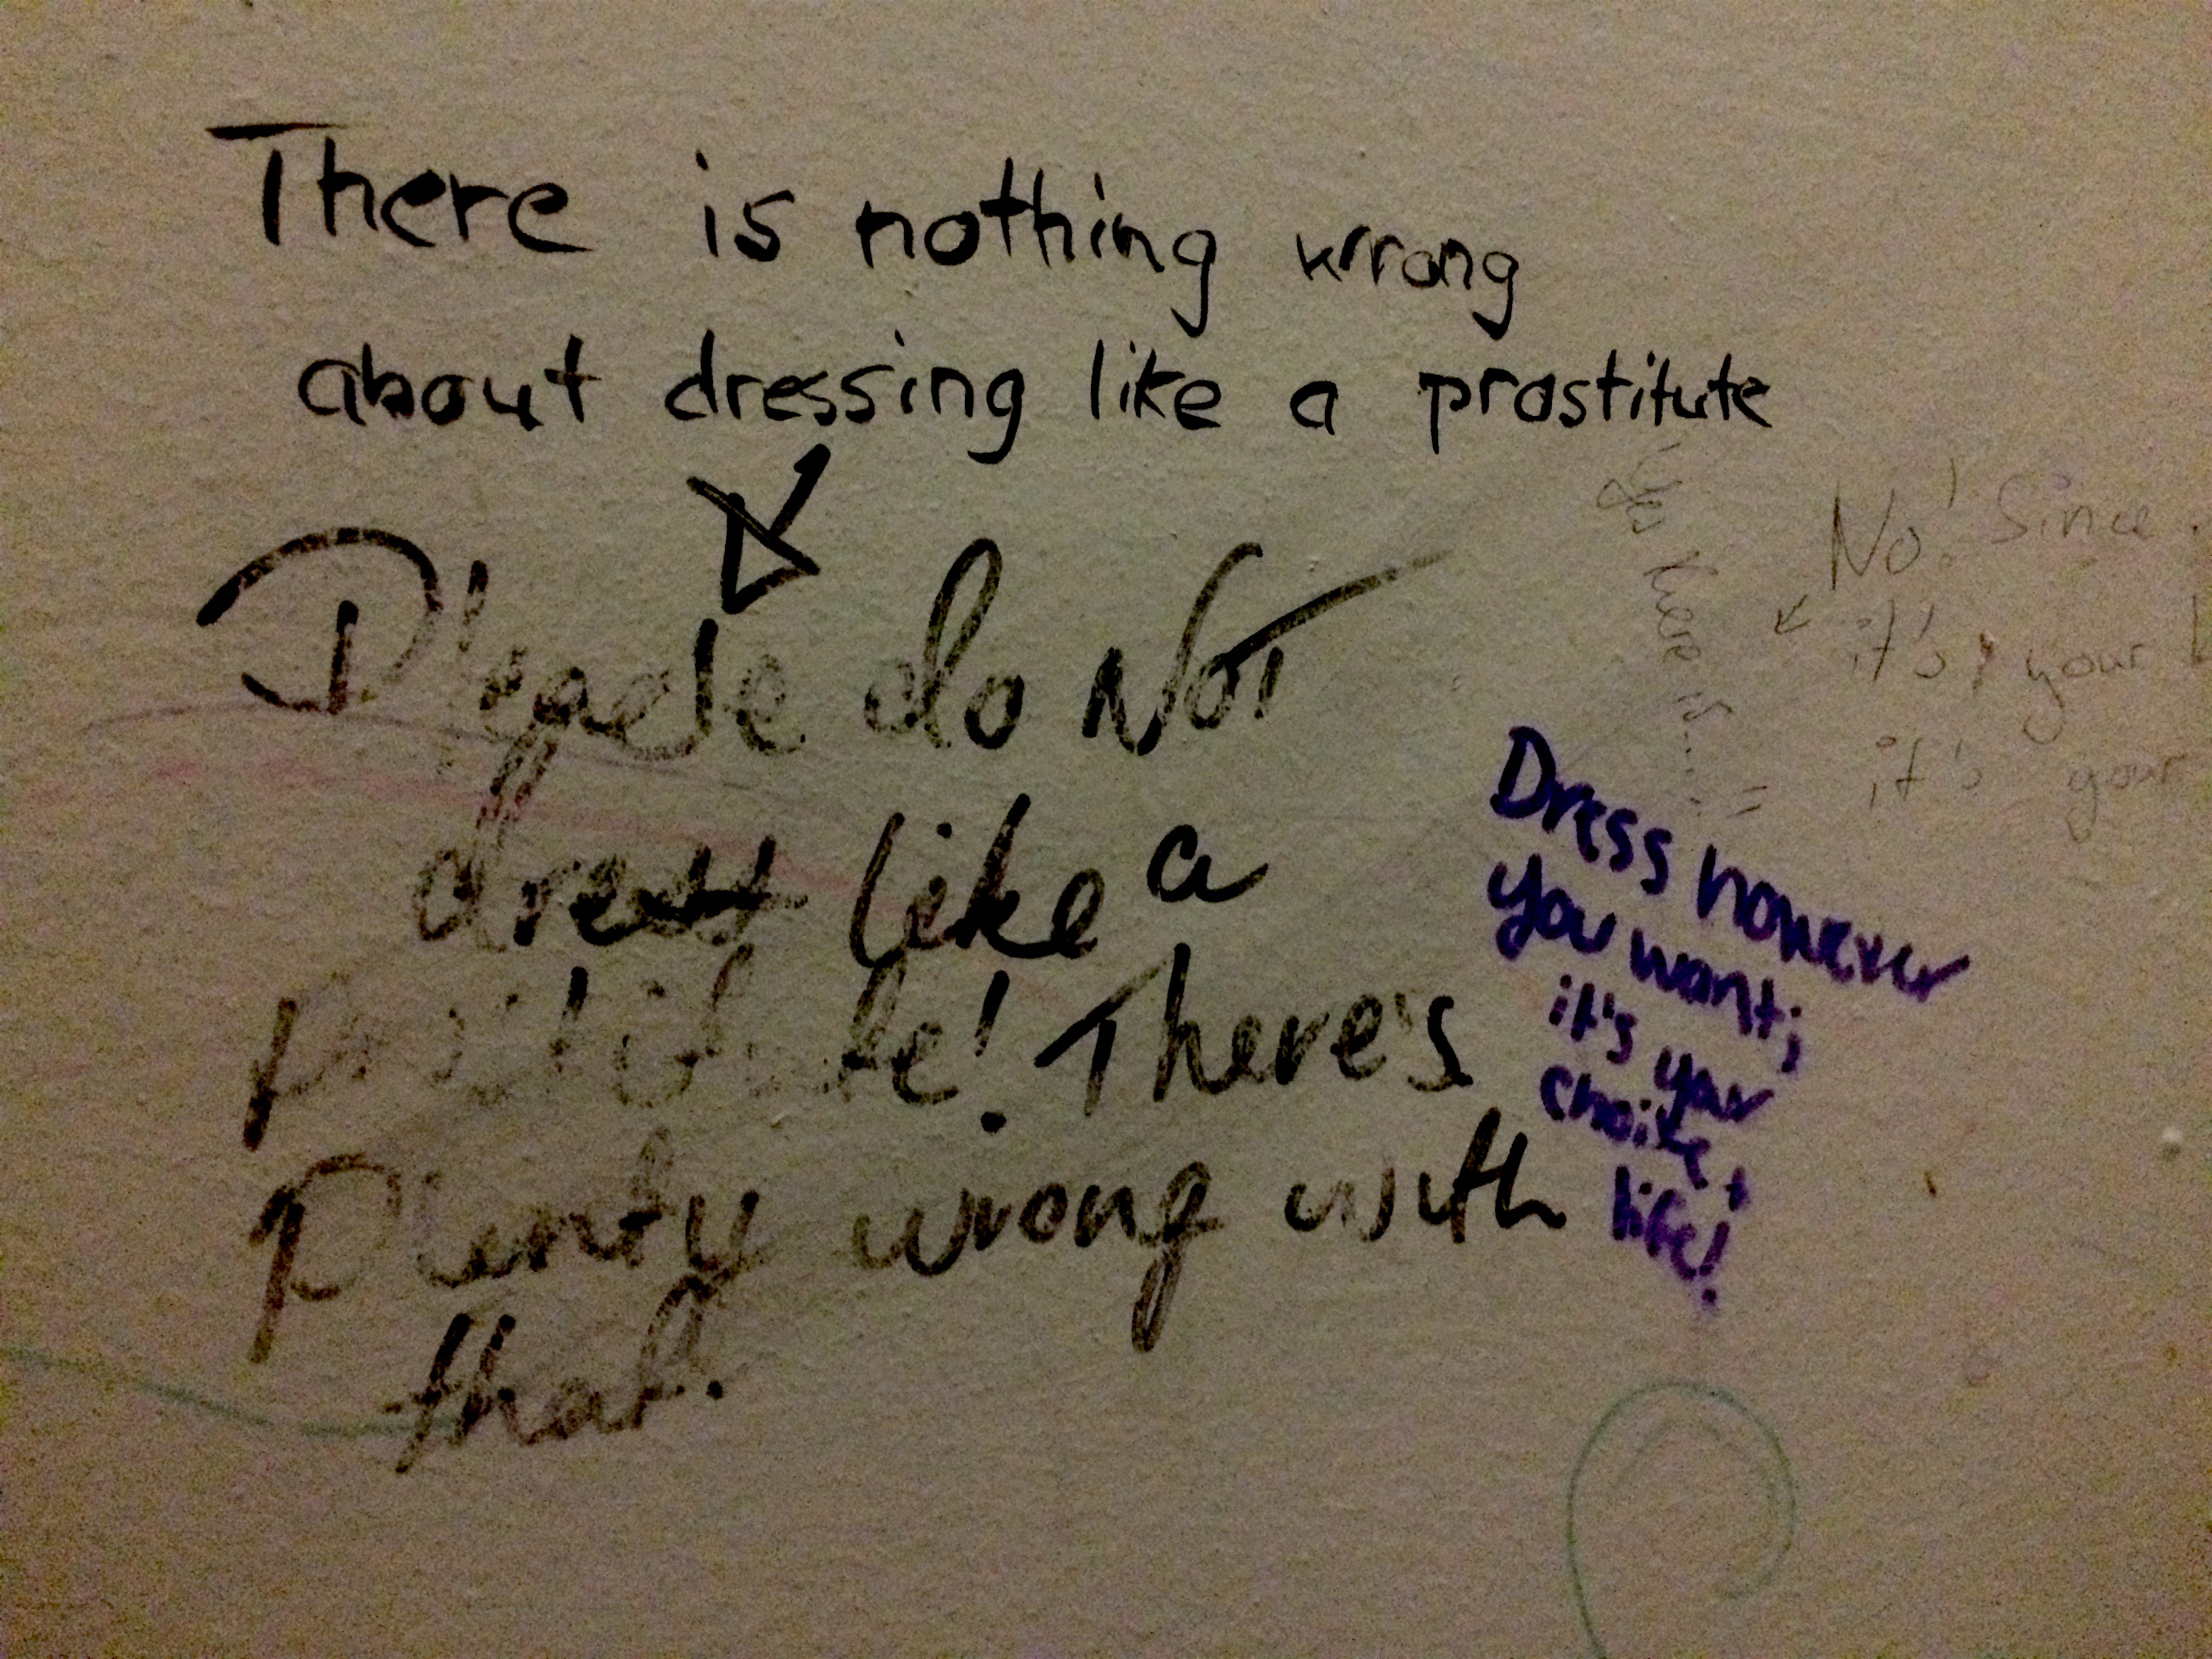 There is nothing wrong
about dressing like a prostitute
Please do NOT
dress like a
prostitute! There's
Plenty wrong with
that.
Yes there is....
No! Since
it's your
it's your
Dress however
you want;
it's your
choice +
life!